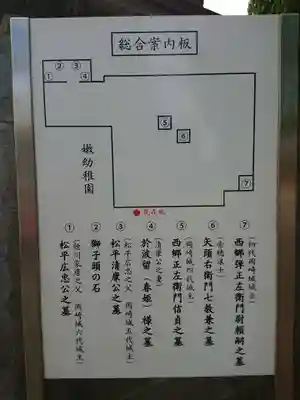 総合案内板
②
③
①
④
⑤
⑥
⑦
嫩幼稚園
現在地
⑦
(初代岡崎城主)
西郷弾正左衛門尉頼嗣之墓
⑥
(赤穂浪士)
矢頭右衛門七教兼之墓
⑤
(岡崎城四代城主)
西郷正左衛門信貞之墓
④
(清康公之妻)
於波留(春姫)様之墓
③
(松平広忠之父 岡崎城五代城主)
松平清康公之墓
②
獅子頭の石
①
(徳川家康之父 岡崎城六代城主)
松平広忠公之墓